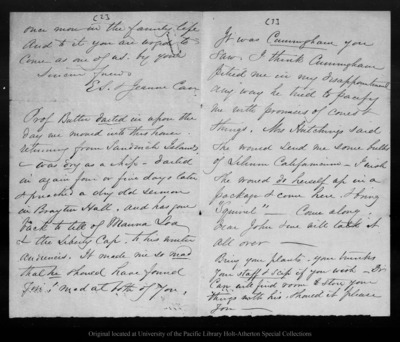 (2)
once more in the family life
And to it you are urged to
Come as one of us. by your
Sincere friends
E.S. & Jeanne Carr
Prof Butler darted in upon the
day we moved into this house
returning from Sandwich Islands
& was dry as a chip - darted
in again four or five days later
& preached a dry old sermon
in Brayton Hall. And has gone
back to tell of Mauna Loa
& the Liberty Cap. to his
audiences. It made me so mad
that he should have found
You! mad at both of you,
(3)
It was Cunningham you
Saw. I think Cunningham
pitied me in my disappointment
any way he tried to pacify
me with promises of
things. Mrs Hutchings said
She would send me some bulbs
of Lilium Californium - I wish
She would do herself up in a
package & come here & bring
"Squirrel" - Come along
Dear John & we will talk it
all over -
Bring your plants - your
your staff & scrip if you wish - Dr
Carr will find room & store your
things with his should it please
you -
Original located at University of the Pacific Library Holt-Atherton Special Collections